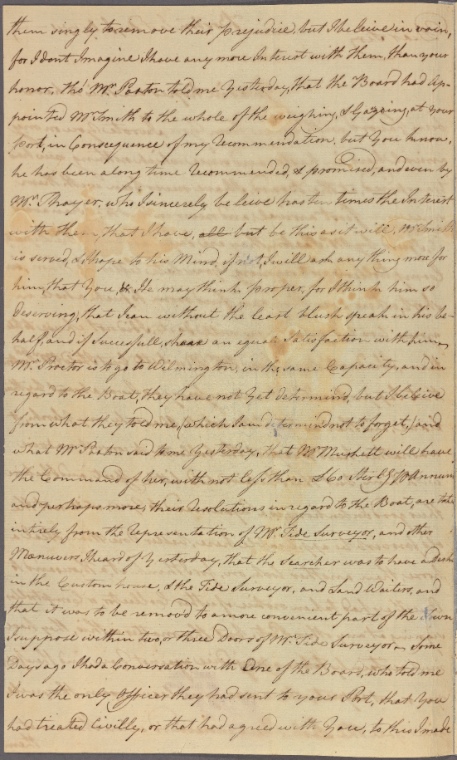 them singly to remove their prejudice but I beleive in vain,
for I dont Imagine I have any more Interest with them, than your
honor, tho' Mr. Paxton told me Yesterday, that the Board had ap-
pointed Mr. Smith to the whole of the weighing, & Gaging, at your
Port, in Consequence of my recommendation, but You know,
he has been a long time recommended, & promised, and even by
Mr. Thayer, who I sincerely beleive has ten times the Interest
with them, that I have, but be this as it will, Mr. Smith
is served, & I hope to his Mind, if not, I will ask any thing more for
him, that You, & He may think proper, for I think him so
deserving, that I can without the least blush speak in his be-
half, and if successfull, have an equal satisfaction with him.
Mr. Proctor is to go to Wilmington, in the same Capacity, and in
regard to the Boat, they have not Yet determind, but I beleive
from what they told me, (which I am determind not to forget,) and
what Mr. Paxton said to me Yesterday, that Mr. will have
the Command of her, with not less than £60 Ster. Annum
and perhaps more, their resolutions in regard to the Boat, are taken
intirely from the representation of Mr. Tide Surveyor, and other
Manuvers I heard of Yesterday, that the Searcher was to have a Desk
in the Custom house, & the Tide Surveyor, and Land Waiter, and
that it was to be removd to a more convenient part of the Town
I suppose within two, or three Doors of Mr. Tide Surveyor. Some
Days ago I had a Conversation with One of the Board, who told me
I was the only Officer they had sent to your Port, that You
had treated Civilly, or that had agreed with You, to this I made